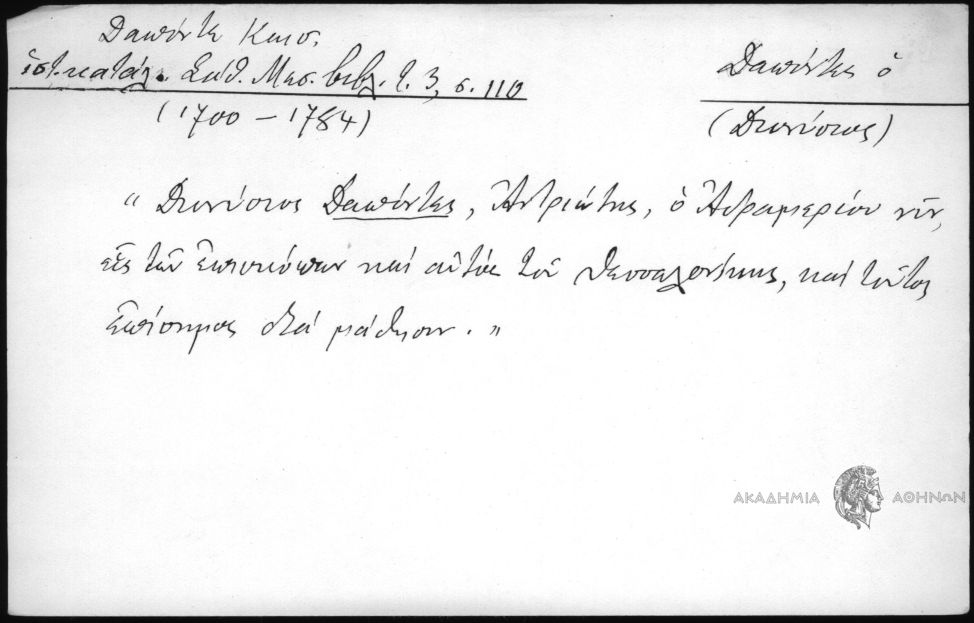 Δαπόντε Καισ.
ἱστ. κατάλ. Σάθ. Μεσ. Βιβλ. τ. 3, σ. 110
(1700 - 1784)
Δαπόντες ὁ
(Διονύσιος)
“ Διονύσιος Δαπόντες, Ἀντριώτης, ὁ Ἀδραμερίου νῦν,
εἷς τῶν ἐπισκόπων καὶ αὐτὸς τοῦ Θεσσαλονίκης, καὶ τοῦτος
ἐπίσημος διὰ μάθησιν. ”
ΑΚΑΔΗΜΙΑ ΑΘΗΝΩΝ